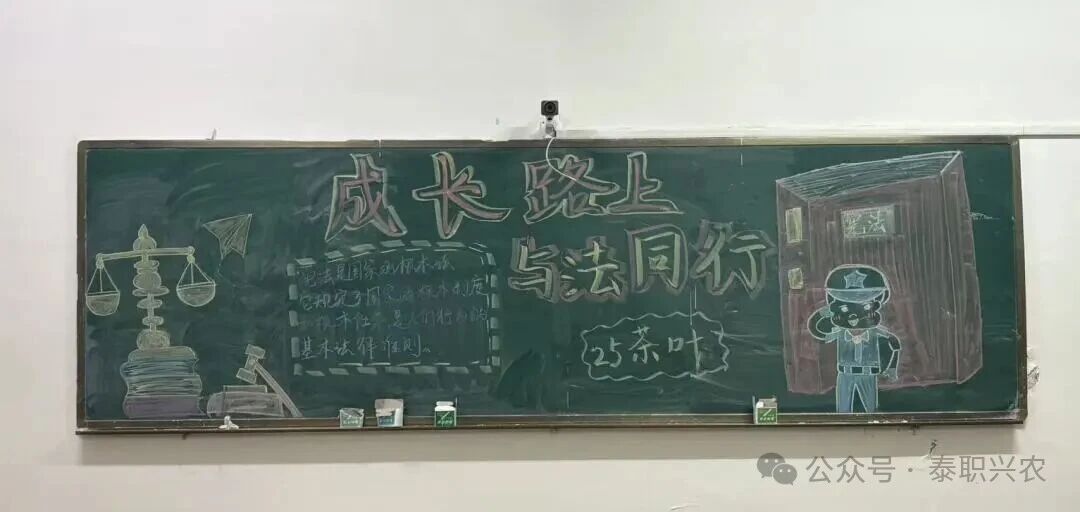 成长路上
与法同行
宪法是国家的根本法
它规定了国家的根本制度
和根本任务是人们行为的
基本法律准则。
25茶叶
宪法
公众号·泰职兴农